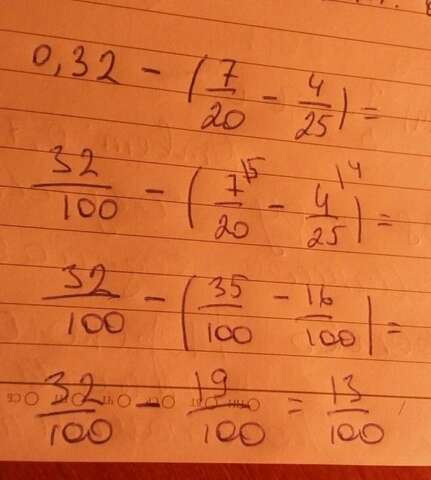 0,32 - (7/20 - 4/25) =
32/100 - (7\5/20 - 4\4/25) =
32/100 - (35/100 - 16/100) =
32/100 - 19/100 = 13/100